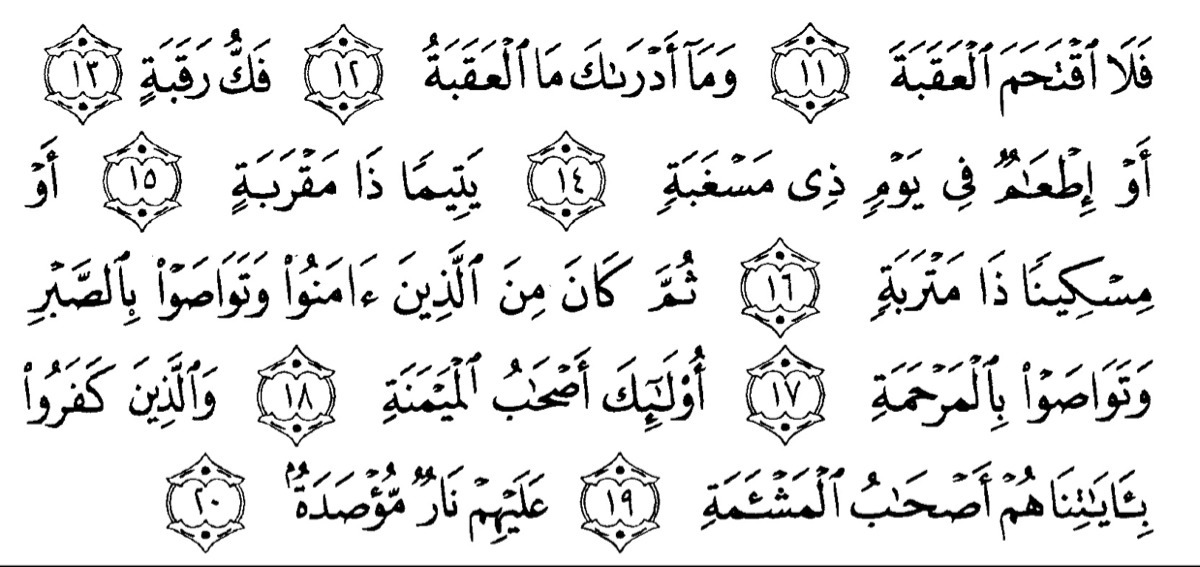 فَلَا ٱقۡتَحَمَ ٱلۡعَقَبَةَ ١١ وَمَآ أَدۡرَىٰكَ مَا ٱلۡعَقَبَةُ ١٢ فَكُّ رَقَبَةٍ ١٣
أَوۡ إِطۡعَٰمٞ فِي يَوۡمٖ ذِي مَسۡغَبَةٖ ١٤ يَتِيمٗا ذَا مَقۡرَبَةٍ ١٥ أَوۡ
مِسۡكِينٗا ذَا مَتۡرَبَةٖ ١٦ ثُمَّ كَانَ مِنَ ٱلَّذِينَ ءَامَنُواْ وَتَوَاصَوۡاْ بِٱلصَّبۡرِ
وَتَوَاصَوۡاْ بِٱلۡمَرۡحَمَةِ ١٧ أُوْلَٰٓئِكَ أَصۡحَٰبُ ٱلۡمَيۡمَنَةِ ١٨ وَٱلَّذِينَ كَفَرُواْ
بِـَٔايَٰتِنَا هُمۡ أَصۡحَٰبُ ٱلۡمَشۡـَٔمَةِ ١٩ عَلَيۡهِمۡ نَارٞ مُّؤۡصَدَةُۢ ٢٠